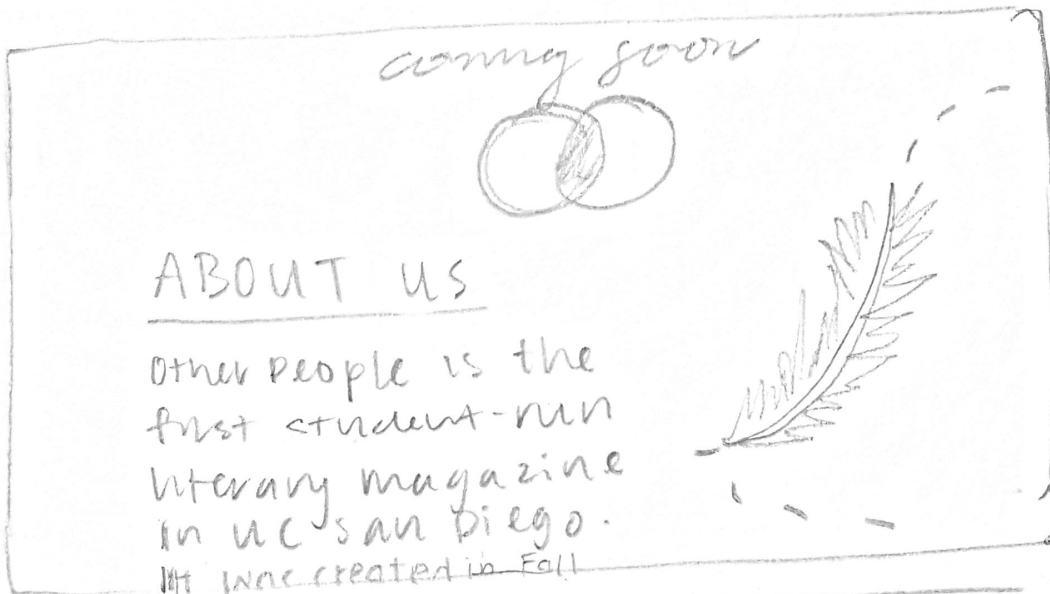 coming soon
ABOUT US
Other People is the
first student-run
literary magazine
in UC San Diego.
It was created in Fall